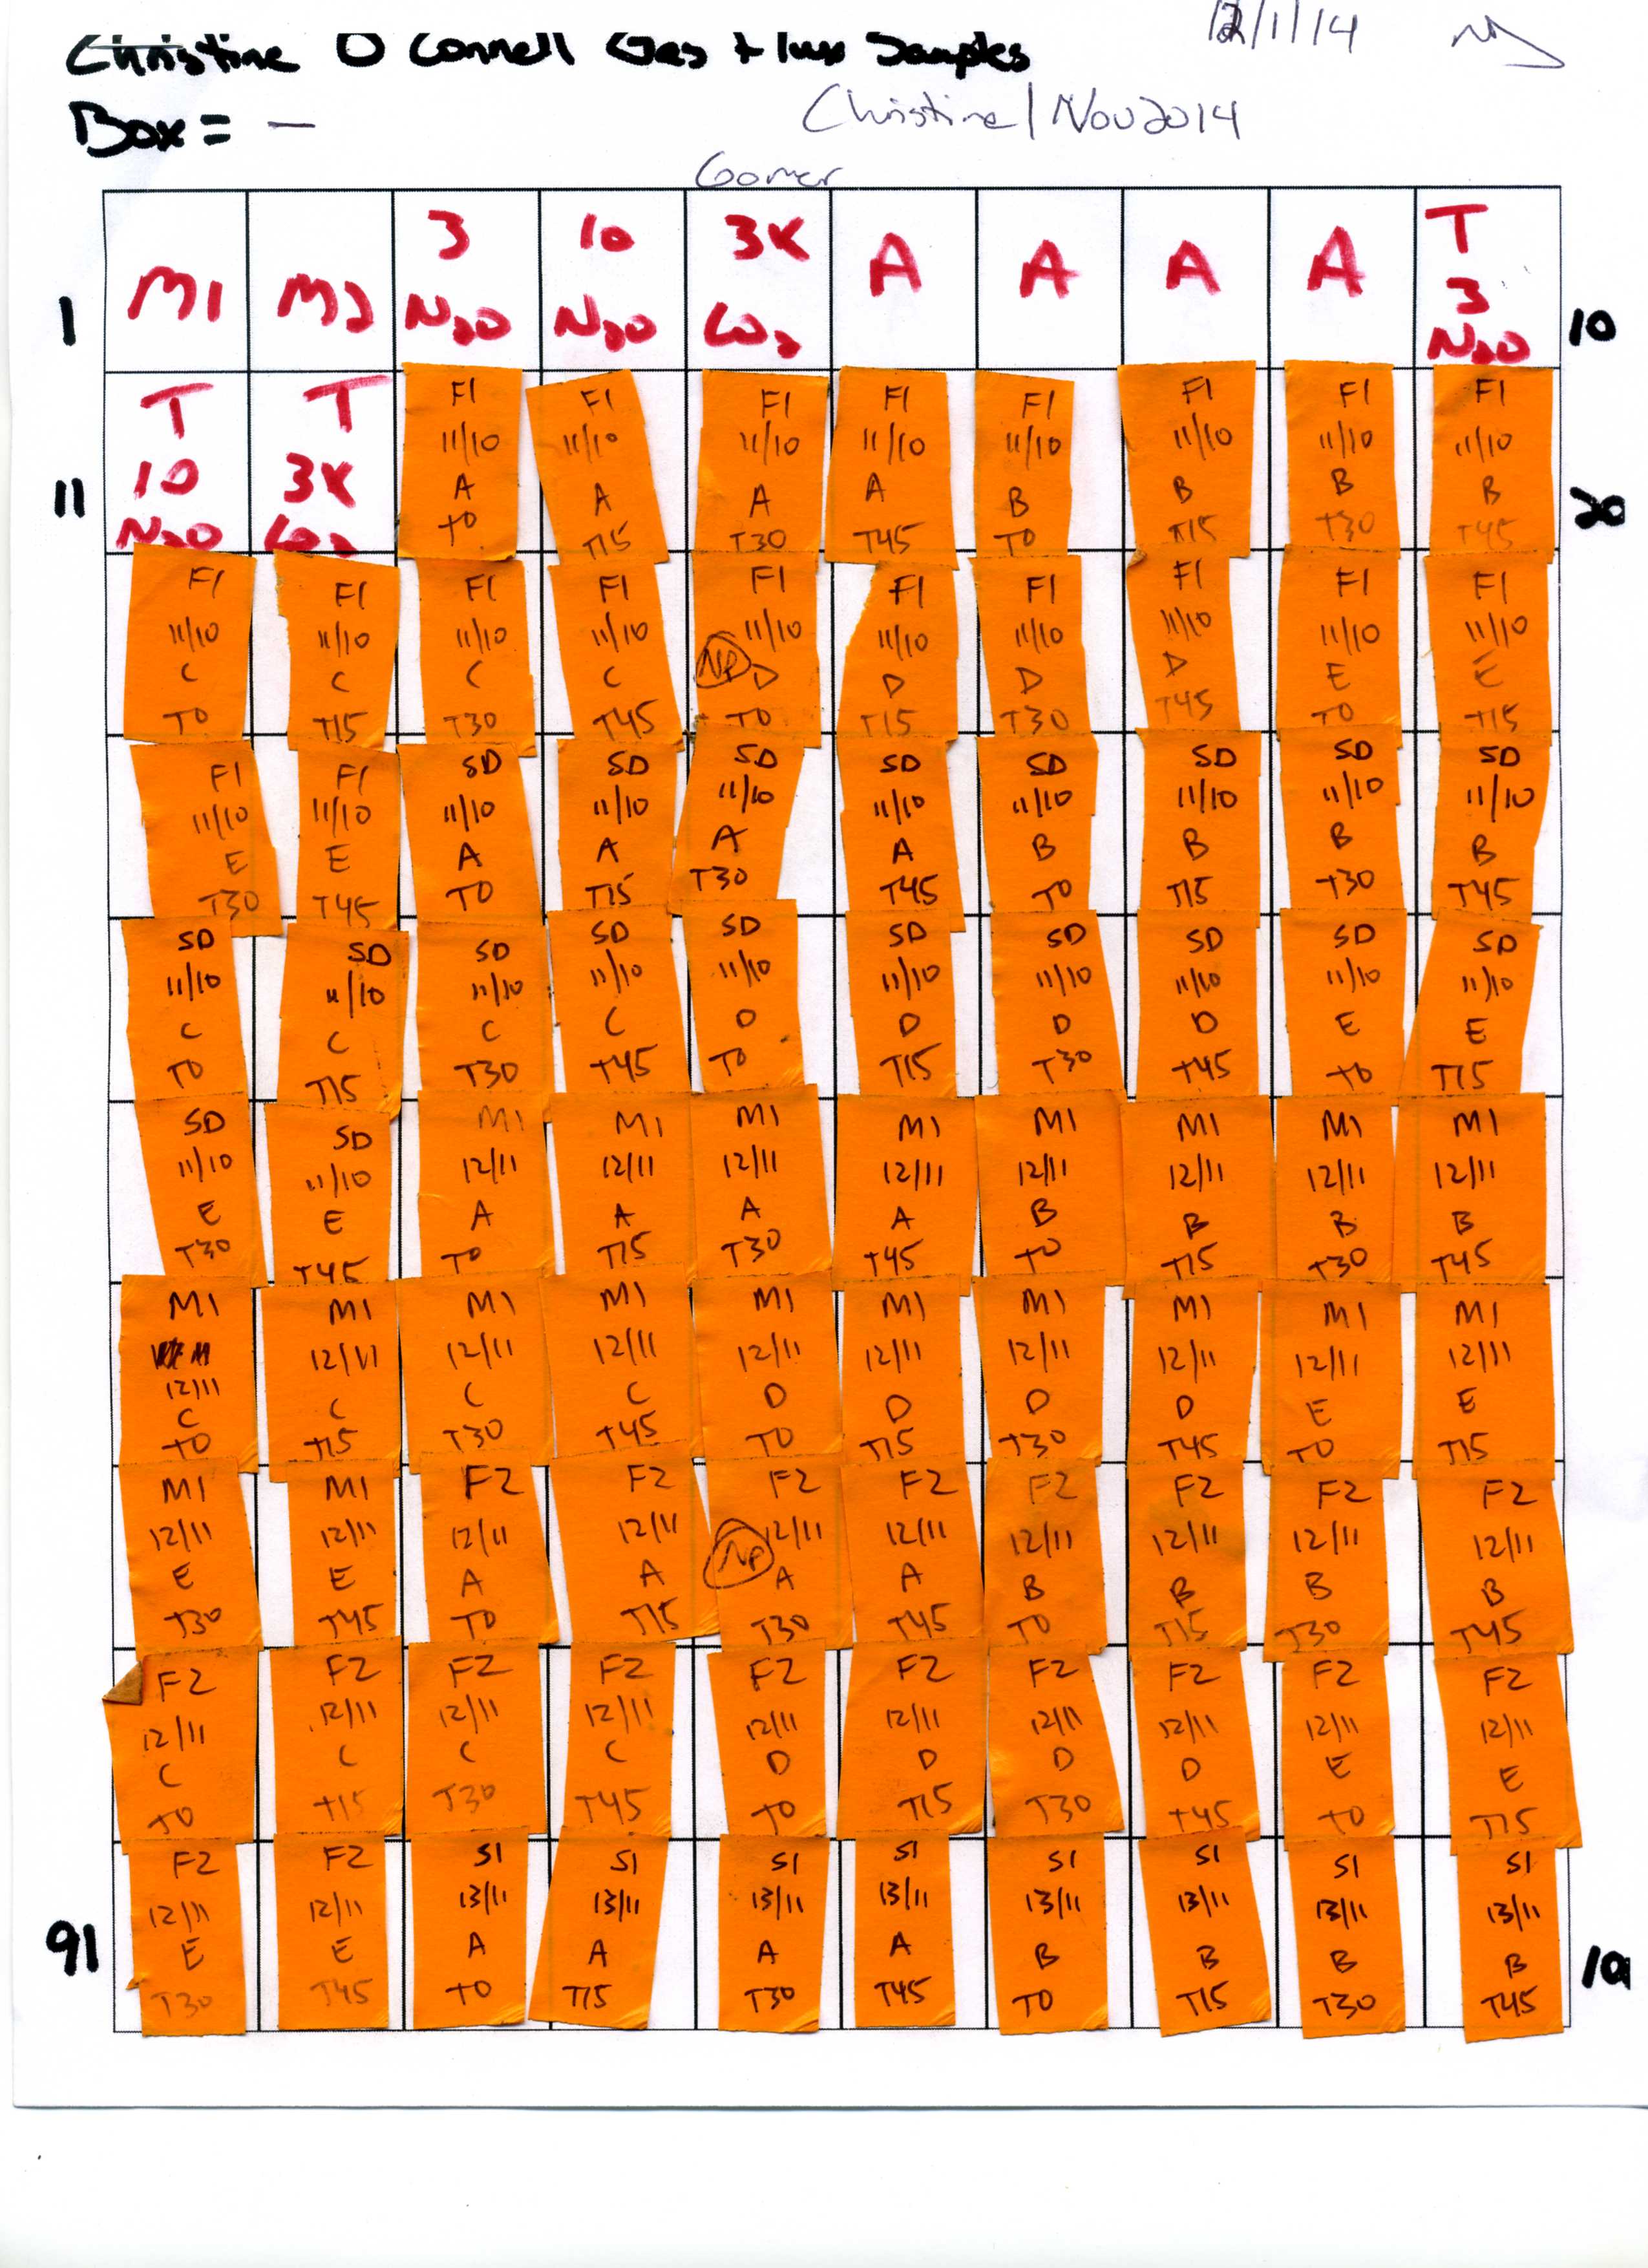 12/1/14
Christine O Connell Gas Flux Samples
Box = —
Christine/Nov2014
Gomer
1
M1
M2
3
N2O
10
N2O
3X
CO2
A
A
A
A
T
3
N2O
10
11
T
10
N2O
T
3X
CO2
F1
11/10
A
T0
F1
11/10
A
T15
F1
11/10
A
T30
F1
11/10
A
T45
F1
11/10
B
T0
F1
11/10
B
T15
F1
11/10
B
T30
F1
11/10
B
T45
20
F1
11/10
C
T0
F1
11/10
C
T15
F1
11/10
C
T30
F1
11/10
C
T45
F1
11/10
NP D
T0
F1
11/10
D
T15
F1
11/10
D
T30
F1
11/10
D
T45
F1
11/10
E
T0
F1
11/10
E
T15
F1
11/10
E
T30
F1
11/10
E
T45
SD
11/10
A
T0
SD
11/10
A
T15
SD
11/10
A
T30
SD
11/10
A
T45
SD
11/10
B
T0
SD
11/10
B
T15
SD
11/10
B
T30
SD
11/10
B
T45
SD
11/10
C
T0
SD
11/10
C
T15
SD
11/10
C
T30
SD
11/10
C
T45
SD
11/10
D
T0
SD
11/10
D
T15
SD
11/10
D
T30
SD
11/10
D
T45
SD
11/10
E
T0
SD
11/10
E
T15
SD
11/10
E
T30
SD
11/10
E
T45
M1
12/11
A
T0
M1
12/11
A
T15
M1
12/11
A
T30
M1
12/11
A
T45
M1
12/11
B
T0
M1
12/11
B
T15
M1
12/11
B
T30
M1
12/11
B
T45
M1
12/11
C
T0
M1
12/11
C
T15
M1
12/11
C
T30
M1
12/11
C
T45
M1
12/11
D
T0
M1
12/11
D
T15
M1
12/11
D
T30
M1
12/11
D
T45
M1
12/11
E
T0
M1
12/11
E
T15
M1
12/11
E
T30
M1
12/11
E
T45
F2
12/11
A
T0
F2
12/11
A
T15
F2
12/11
NP A
T30
F2
12/11
A
T45
F2
12/11
B
T0
F2
12/11
B
T15
F2
12/11
B
T30
F2
12/11
B
T45
F2
12/11
C
T0
F2
12/11
C
T15
F2
12/11
C
T30
F2
12/11
C
T45
F2
12/11
D
T0
F2
12/11
D
T15
F2
12/11
D
T30
F2
12/11
D
T45
F2
12/11
E
T0
F2
12/11
E
T15
91
F2
12/11
E
T30
F2
12/11
E
T45
S1
13/11
A
T0
S1
13/11
A
T15
S1
13/11
A
T30
S1
13/11
A
T45
S1
13/11
B
T0
S1
13/11
B
T15
S1
13/11
B
T30
S1
13/11
B
T45